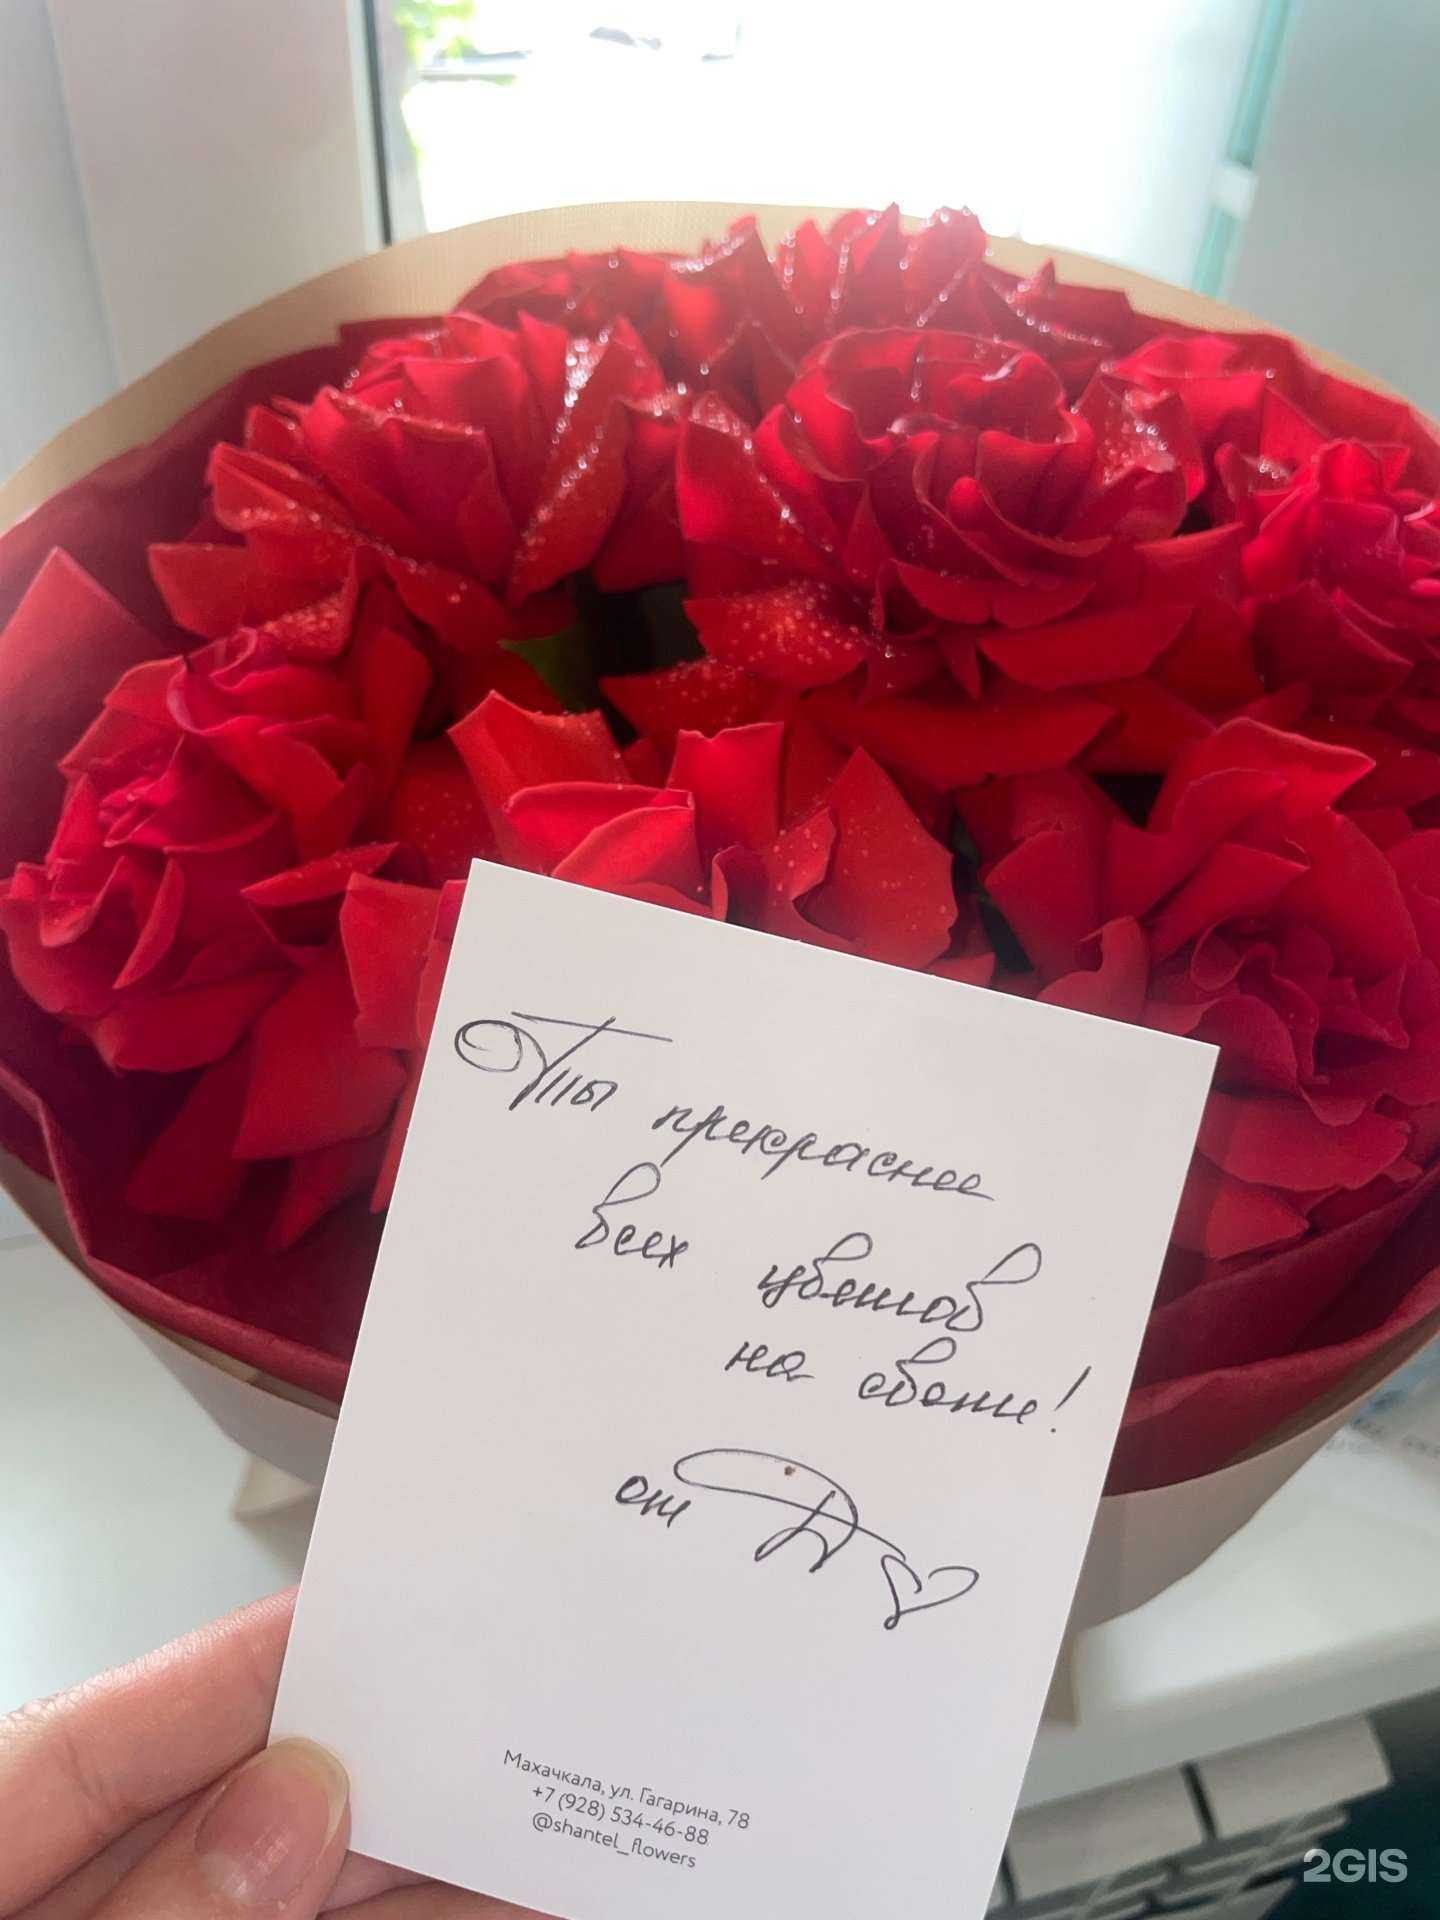 Ты прекраснее
всех цветов
на свете!
от Д
Махачкала, ул. Гагарина, 78
+7 (928) 534-46-88
@shantel_flowers
2GIS